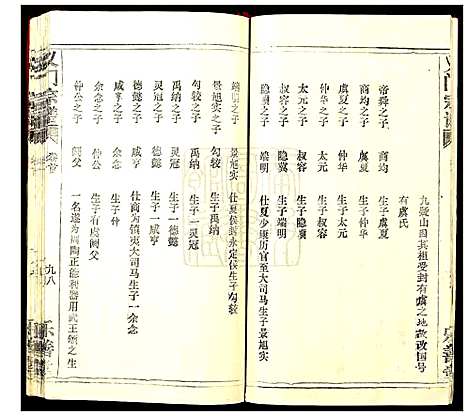 九嶷山因其祖受封有虞之地故改国号
有虞氏
帝舜之子 商均 生子虞夏
商均之子 虞夏 生子仲华
虞夏之子 仲华 生子太元
仲华之子 太元 生子叔容
太元之子 叔容 生子隐
叔容之子 隐 生子端明
之子 端明 仕夏少康历官至大司马生子景旭实
端明之子 景旭实 仕夏封永定侯生子勾较
景旭实之子 勾较 生子禹纳
勾较之子 禹纳 生子一灵冠
禹纳之子 灵冠 生子一德懿
灵冠之子 德懿 生子一咸亨
德懿之子 咸亨 仕商为镇夷大司马生子一余念
咸亨之子 余念 生子一仲公
余念之子 仲公 生子有虞阏父
仲公之子 阏父 一名遂为周陶正能利器用武王赖之生
卷首
九八